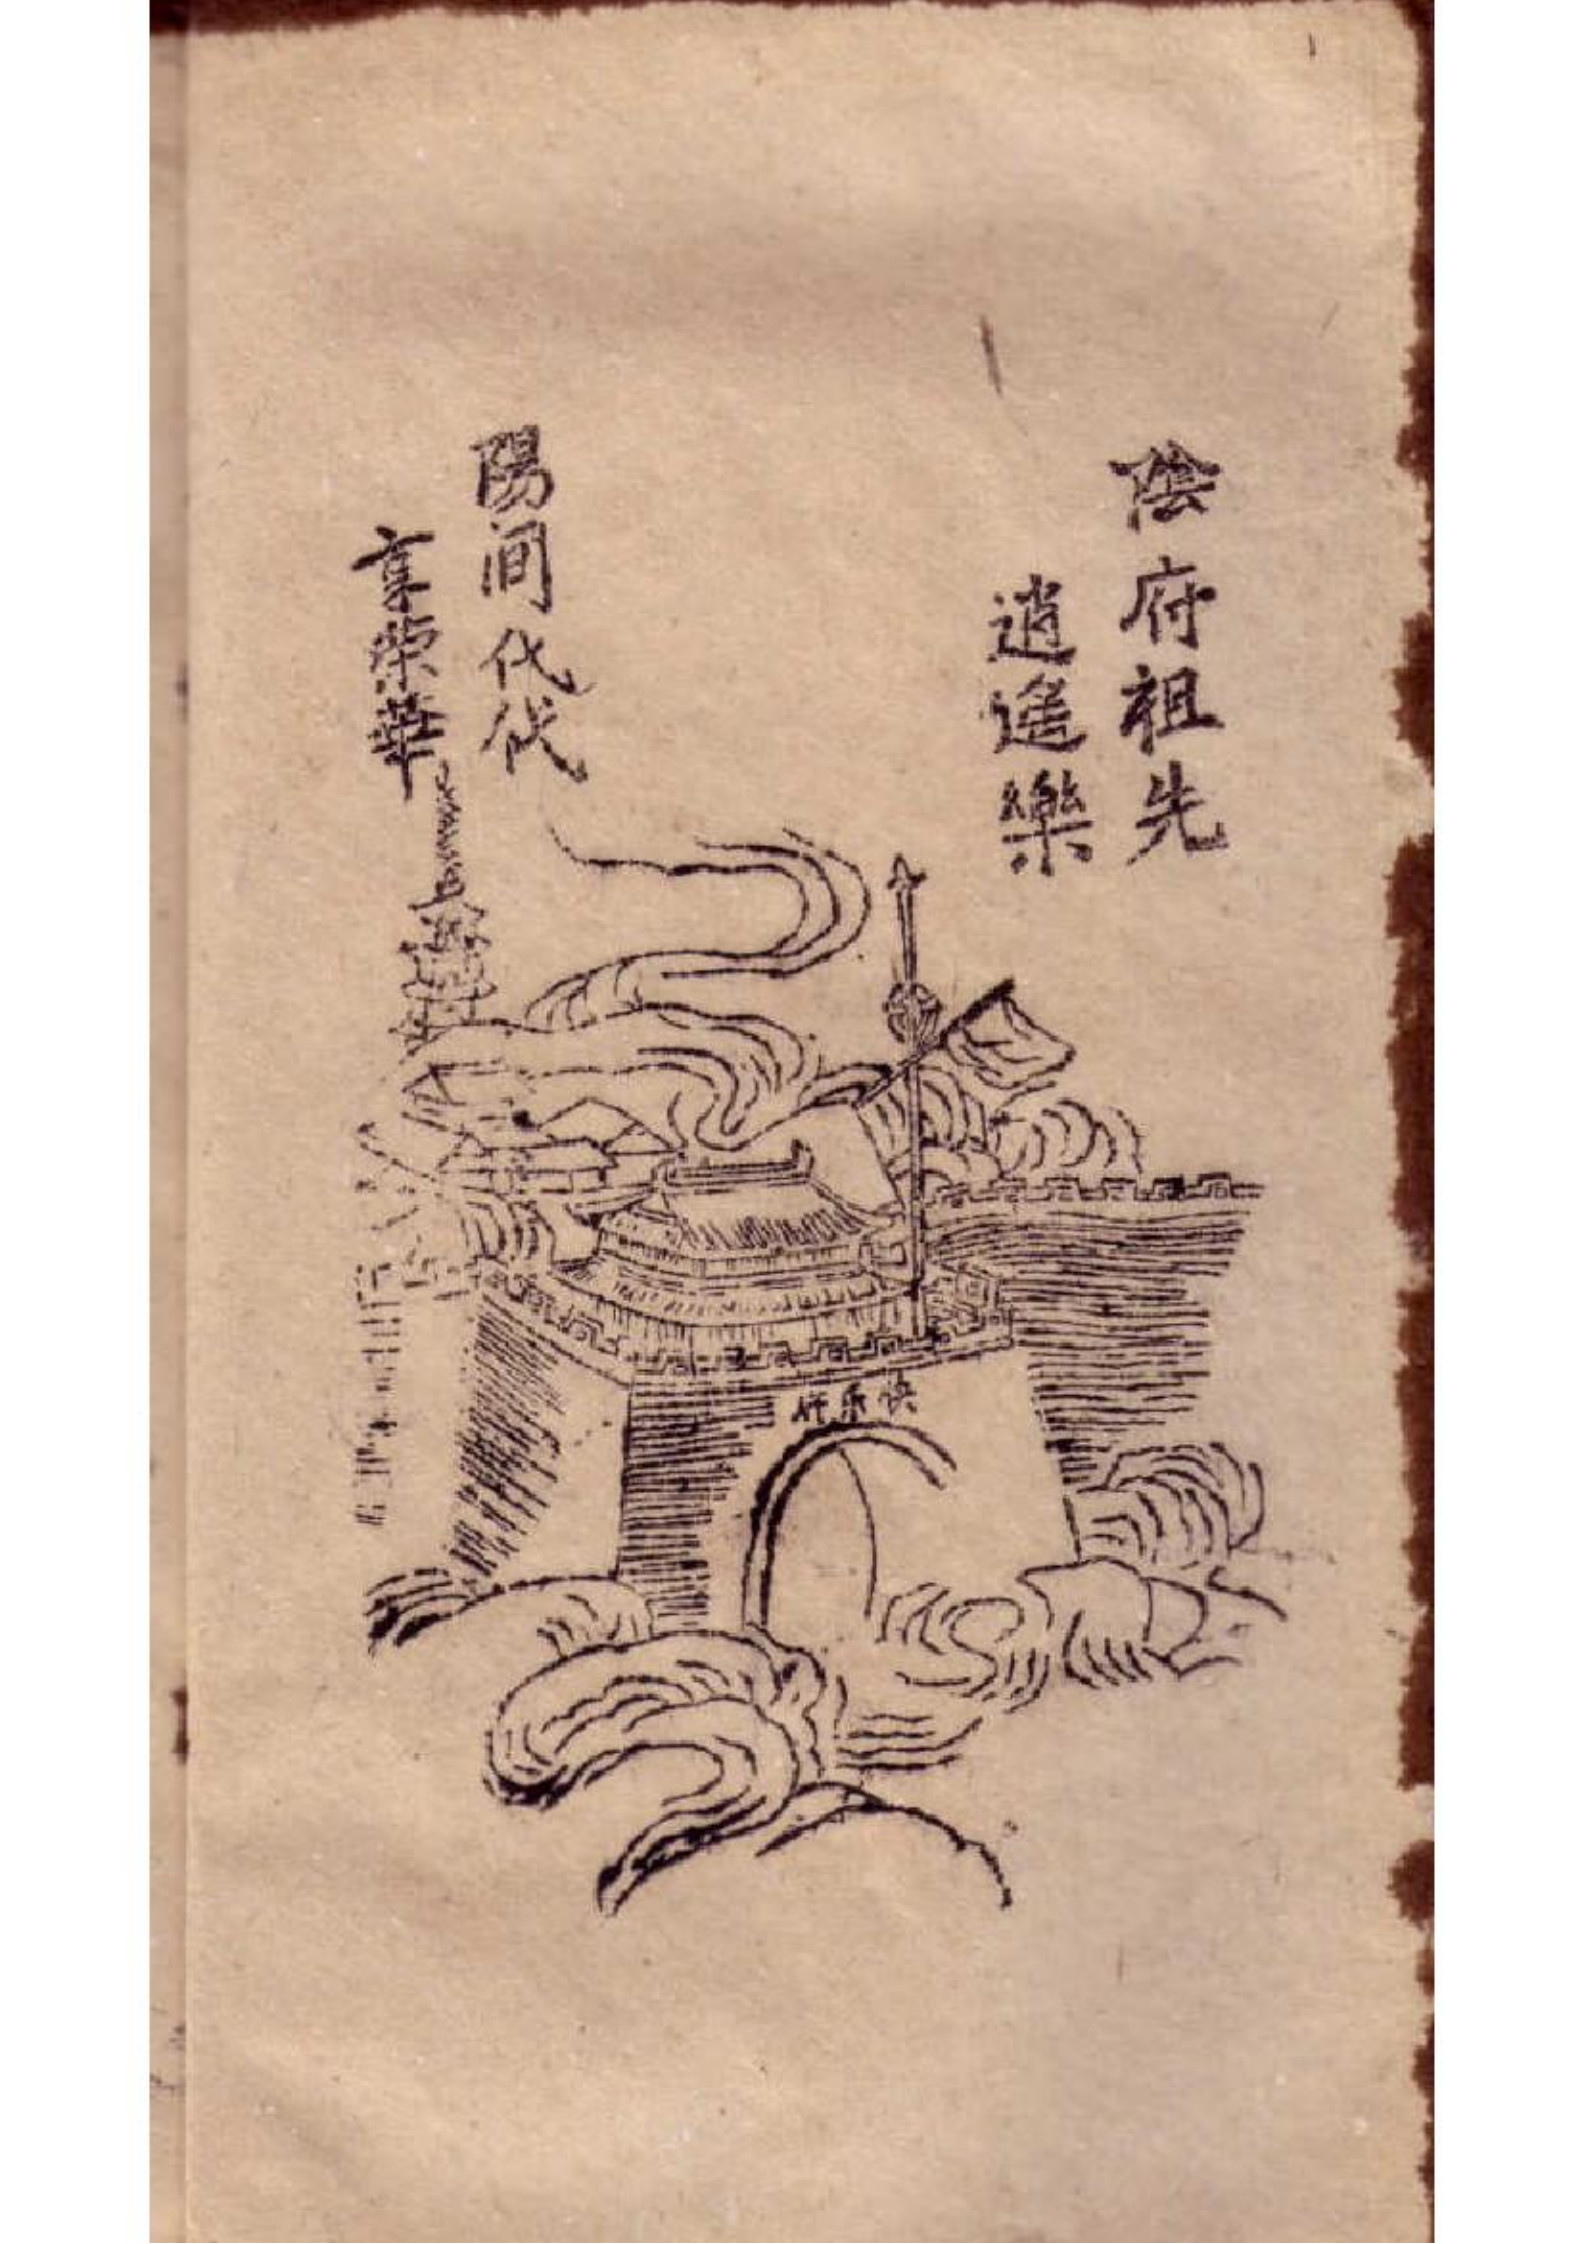 陰府祖先
逍遙樂
陽间代代
享荣華
快乐府